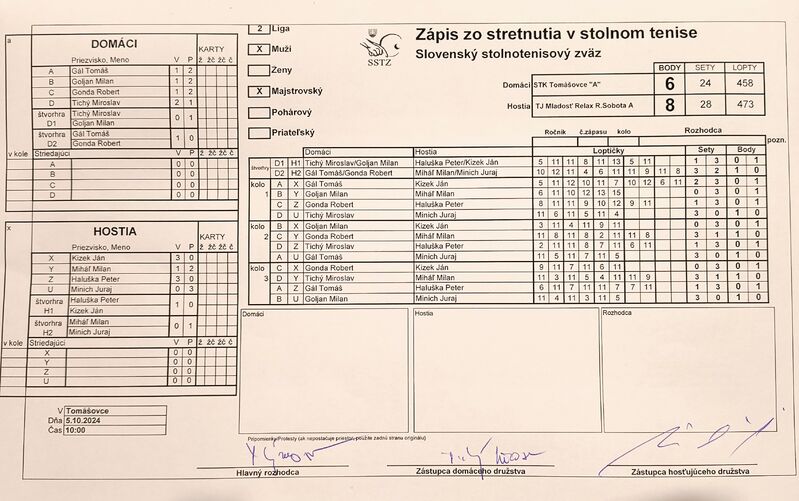 2 Liga
X Muži
Ženy
X Majstrovský
Pohárový
Priateľský
SSTZ
Zápis zo stretnutia v stolnom tenise
Slovenský stolnotenisový zväz
BODY SETY LOPTY
Domáci STK Tomášovce "A" 6 24 458
Hostia TJ Mladosť Relax R.Sobota A 8 28 473
a
DOMÁCI
Priezvisko, Meno V P KARTY ž žč žč č
A Gál Tomáš 1 2
B Goljan Milan 1 2
C Gonda Robert 1 2
D Tichý Miroslav 2 1
štvorhra D1 Tichý Miroslav Goljan Milan 0 1
štvorhra D2 Gál Tomáš Gonda Robert 1 0
v kole Striedajúci V P ž žč žč č
A 0 0
B 0 0
C 0 0
D 0 0
x
HOSTIA
Priezvisko, Meno V P KARTY ž žč žč č
X Kizek Ján 3 0
Y Miháľ Milan 1 2
Z Haluška Peter 3 0
U Minich Juraj 0 3
štvorhra H1 Haluška Peter Kizek Ján 1 0
štvorhra H2 Miháľ Milan Minich Juraj 0 1
v kole Striedajúci V P ž žč žč č
X 0 0
Y 0 0
Z 0 0
U 0 0
V Tomášovce
Dňa 5.10.2024
Čas 10:00
Ročník č.zápasu kolo Rozhodca
pozn.
Domáci Hostia Loptičky Sety Body
štvorhry D1 H1 Tichý Miroslav/Goljan Milan Haluška Peter/Kizek Ján 5 11 11 8 11 13 5 11 1 3 0 1
D2 H2 Gál Tomáš/Gonda Robert Miháľ Milan/Minich Juraj 10 12 11 4 6 11 11 9 11 8 3 2 1 0
kolo 1 A X Gál Tomáš Kizek Ján 5 11 12 10 11 7 10 12 6 11 2 3 0 1
B Y Goljan Milan Miháľ Milan 11 6 11 10 12 13 15
C Z Gonda Robert Haluška Peter 8 11 11 9 10 12 9 11 1 3 0 1
D U Tichý Miroslav Minich Juraj 11 6 11 5 11 4 3 0 1 0
kolo 2 B X Goljan Milan Kizek Ján 3 11 4 11 9 11 0 3 0 1
C Y Gonda Robert Miháľ Milan 11 8 11 8 2 11 11 8 3 1 1 0
D Z Tichý Miroslav Haluška Peter 2 11 11 8 7 11 6 11 1 3 0 1
A U Gál Tomáš Minich Juraj 11 5 11 7 11 5 3 0 1 0
kolo 3 C X Gonda Robert Kizek Ján 9 11 7 11 6 11 0 3 0 1
D Y Tichý Miroslav Miháľ Milan 11 3 11 5 4 11 11 9 3 1 1 0
A Z Gál Tomáš Haluška Peter 7 11 11 7 11 7 11 1 3 0 1
B U Goljan Milan Minich Juraj 11 4 11 3 11 5 3 0 1 0
Domáci Hostia Rozhodca
Pripomienky/Protesty (ak nepostačuje priestor, použite zadnú stranu originálu)
Hlavný rozhodca Zástupca domáceho družstva Zástupca hosťujúceho družstva